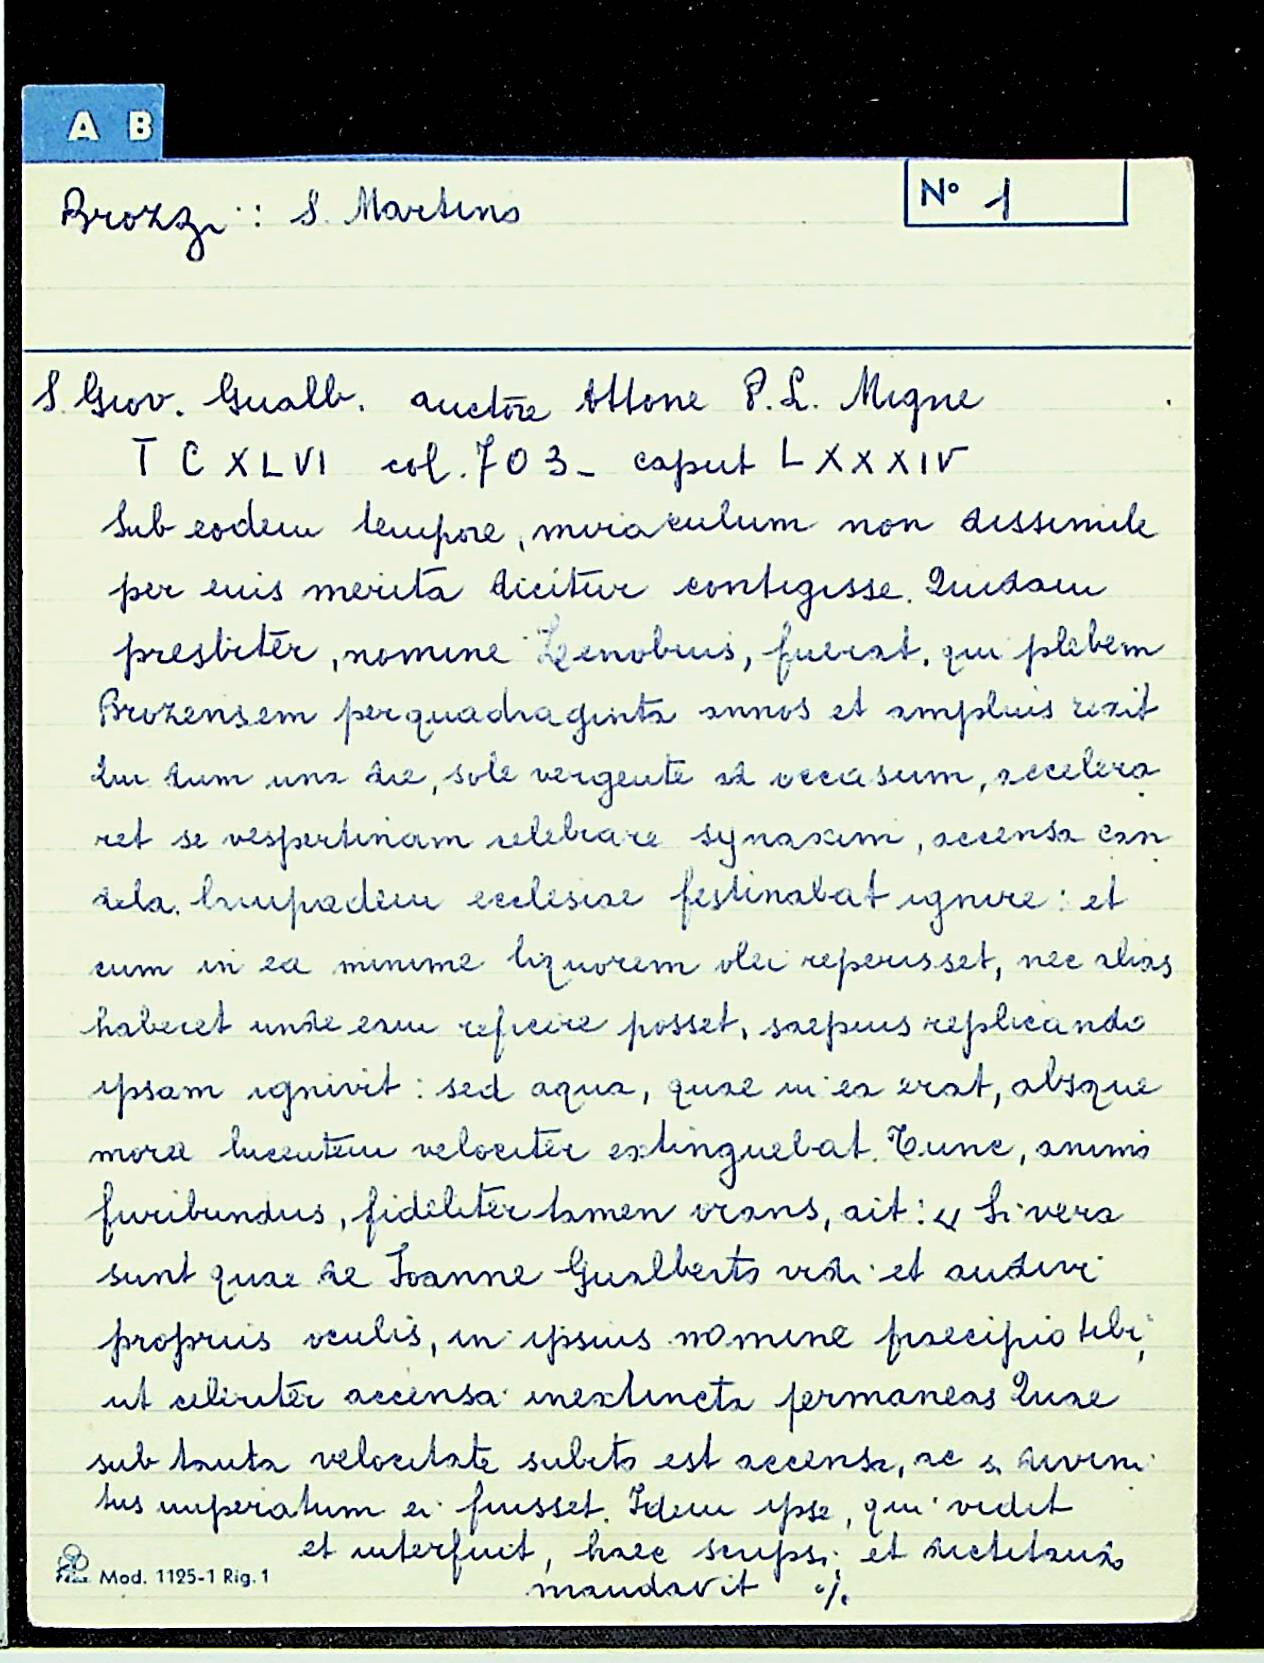 A B
Brozzi : S. Martino
N° 1
S. Giov. Gualb. auctore Attone P.L. Migne
T CXLVI col. 703 - caput LXXXIV
Sub eodem tempore, miraculum non dissimile
per eius merita dicitur contigisse. Quidam
presbiter, nomine Zenobius, fuerat, qui plebem
Brozensem per quadraginta annos et amplius rexit
Qui dum una die, sole vergente ad occasum, accelera
ret se vespertinam celebrare synaxim, accensa can
dela. lampadem ecclesiae festinabat ignire : et
cum in ea minime liquorem olei reperisset, nec alias
haberet unde eam reficere posset, saepius replicando
ipsam ignivit : sed aqua, quae in ea erat, absque
mora lucentem velociter extinguebat. Tunc, animo
furibundus, fideliter tamen orans, ait : « Si vera
sunt quae de Joanne Gualberto vidi et audivi
propriis oculis, in ipsius nomine praecipio tibi,
ut celeriter accensa inextincta permaneas Quae
sub tanta velocitate subito est accensa, ac si divini
tus imperatum ei fuisset. Idem ipse, qui vidit
et interfuit, haec scripsi et dictitando
mandavit ./.
Mod. 1125-1 Rig. 1